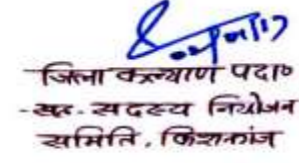 जिला कल्याण पदा०
-सह-सदस्य नियोजन
समिति, किशनगंज